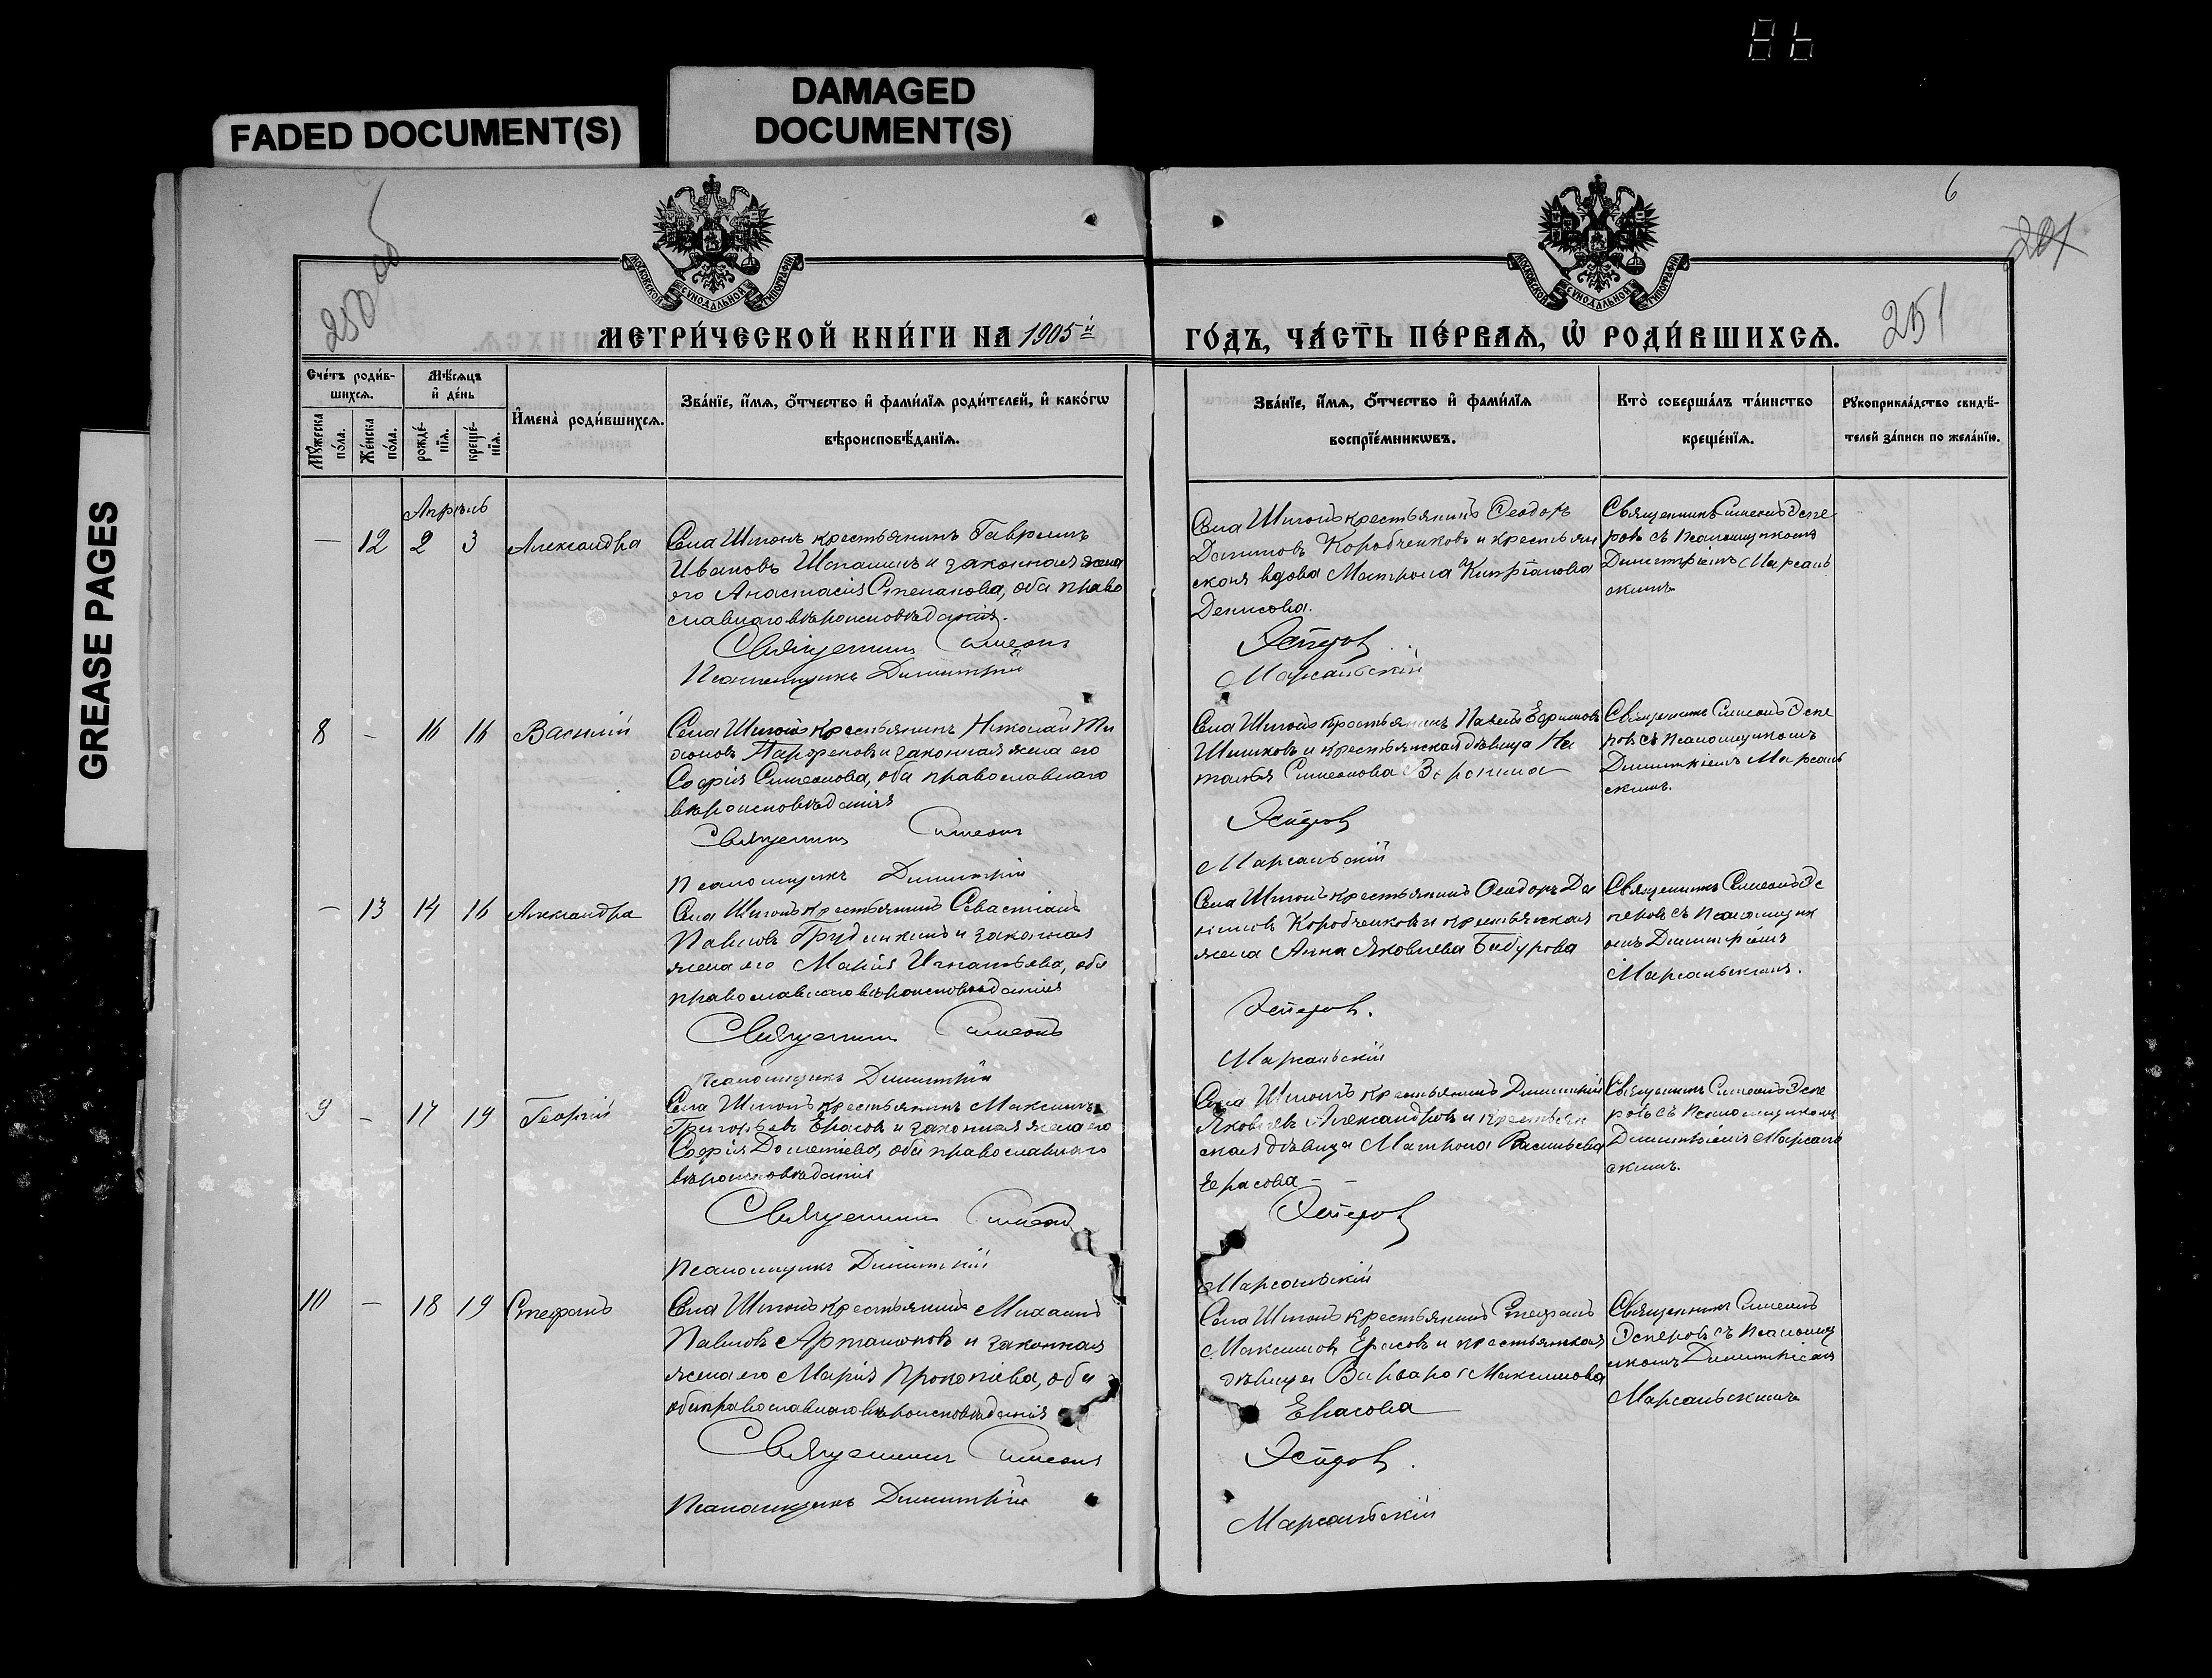 FADED DOCUMENT(S)
DAMAGED
DOCUMENT(S)
GREASE PAGES
6
250 об
251
МОСКОВСКОЙ СѴНОДАЛЬНОЙ ТИПОГРАФІИ
МОСКОВСКОЙ СѴНОДАЛЬНОЙ ТИПОГРАФІИ
МЕТРИ́ЧЕСКОЙ КНИ́ГИ НА 1905й
ГО́ДЪ, ЧА́СТЬ ПЕ́РВАѦ, Ѡ҆ РОДИ́ВШИХСѦ.
Сче́тъ роди́в-
шихсѧ.
Мꙋ́жеска по́ла.
Же́нска по́ла.
Мѣ́сѧцъ
и҆ де́нь
рожде́-
нїѧ.
креще́-
нїѧ.
И҆мена̀ роди́вшихсѧ.
Зва́нїе, и҆́мѧ, ѻ҆́тчество и҆ фами́лїѧ роди́телей, и҆ како́гѡ
вѣроисповѣ́данїѧ.
Зва́нїе, и҆́мѧ, ѻ҆́тчество и҆ фами́лїѧ
воспрїе́мникѡвъ.
Кто̀ соверша́лъ та́инство
креще́нїѧ.
Рꙋкоприкла́дство свидѣ́-
телей за́писи по жела́нїю.
Апрѣль
— 12 2 3 Александра
Села крестьянинъ Гавріилъ
Ивановъ и законная жена
его Анастасія Степанова, оба право
славнаго вѣроисповѣданія.
Священникъ Симеонъ
Псаломщикъ Димитрій
Села крестьянинъ Ѳеодоръ
Даниловъ Коробченковъ и крестьян
ская вдова Матрона Кипріанова
Денисова.
Эсперовъ
Марсальскій
Священникъ Симеонъ Эспе
ровъ съ псаломщикомъ
Димитріемъ Марсаль
скимъ
8 — 16 16 Василій
Села крестьянинъ Николай Ти
Парфеновъ и законная жена его
Софія Симеонова, оба православнаго
вѣроисповѣданія
Священникъ Симеонъ
Псаломщикъ Димитрій
Села крестьянинъ Павелъ Ефимовъ
Шишковъ и крестьянская дѣвица На
талья Симеонова Воронина
Эсперовъ
Марсальскій
Священникъ Симеонъ Эспе
ровъ съ псаломщикомъ
Димитріемъ Марсаль
скимъ.
— 13 14 16 Александра
Села крестьянинъ Севастіанъ
Павловъ и законная
жена его Марія Игнатьева, оба
православнаго вѣроисповѣданія
Священникъ Симеонъ
Псаломщикъ Димитрій
Села крестьянинъ Ѳеодоръ Да
ниловъ Коробченковъ и крестьянская
жена Анна Яковлева Бабурова
Эсперовъ.
Марсальскій
Священникъ Симеонъ Эс
перовъ съ псаломщик
омъ Димитріемъ
Марсальскимъ.
9 — 17 19 Георгій
Села крестьянинъ Максимъ
Григорьевъ Ерасовъ и законная жена его
Софія Дометіева, оба православнаго
вѣроисповѣданія
Священникъ Симеонъ
Псаломщикъ Димитрій
Села крестьянинъ Димитрій
Яковлевъ Александровъ и крестьян
ская дѣвица Матрона Васильева
Ерасова —
Эсперовъ
Марсальскій
Священникъ Симеонъ Эспе
ровъ съ псаломщикомъ
Димитріемъ Марсаль
скимъ.
10 — 18 19 Стефанъ
Села крестьянинъ Михаилъ
Павловъ Артамоновъ и законная
жена его Марія Прокопіева, оба
оба православнаго вѣроисповѣданія
Священникъ Симеонъ
Псаломщикъ Димитрій
Села крестьянинъ Стефанъ
Максимовъ Ерасовъ и крестьянская
дѣвица Варвара Максимова
Ерасова
Эсперовъ.
Марсальскій
Священникъ Симеонъ
Эсперовъ съ псаломщ
икомъ Димитріемъ
Марсальскимъ